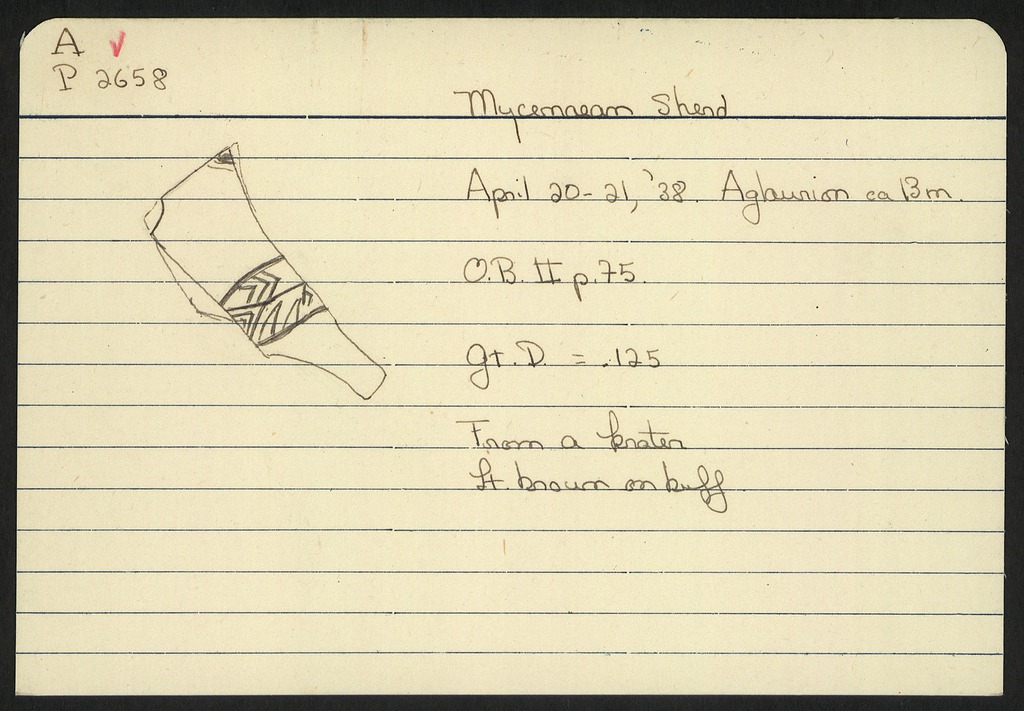 A ✓
P 2658
Mycenaean Sherd
April 20-21, '38. Aglaurion ca 13 m.
O.B. II p. 75.
gt. D. = .125
From a krater
Lt. brown on buff